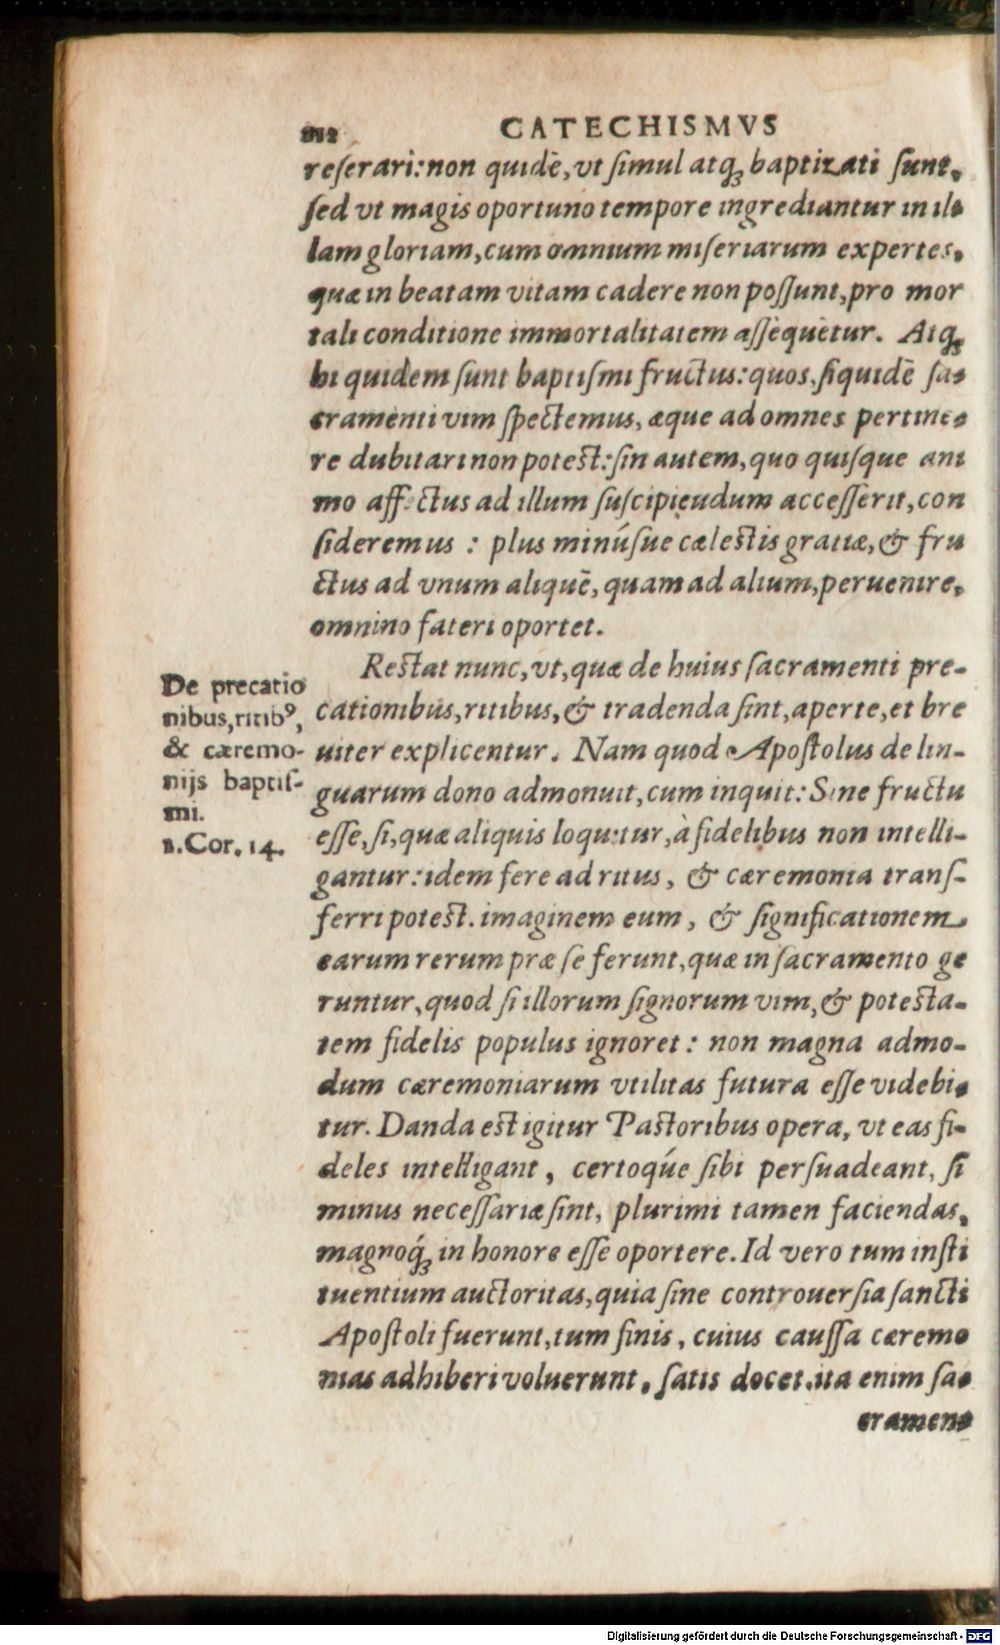 212 CATECHISMVS
reſerari: non quidē, vt ſimul atq; baptizati ſunt,
ſed vt magis oportuno tempore ingrediantur in il-
lam gloriam, cum omnium miſeriarum expertes,
quæ in beatam vitam cadere non poſſunt, pro mor
tali conditione immortalitatem aſſequētur. Atq;
hi quidem ſunt baptiſmi fructus: quos, ſiquidē ſa-
cramenti vim ſpectemus, æque ad omnes pertine-
re dubitari non poteſt: ſin autem, quo quiſque ani
mo affectus ad illum ſuſcipiendum acceſſerit, con
ſideremus : plus minúſue cæleſtis gratiæ, & fru
ctus ad vnum aliquē, quam ad alium, peruenire,
omnino fateri oportet.
Reſtat nunc, vt, quæ de huius ſacramenti pre-
cationibus, ritibus, & tradenda ſint, aperte, et bre
uiter explicentur. Nam quod Apoſtolus de lin-
guarum dono admonuit, cum inquit: Sine fructu
eſſe, ſi, quæ aliquis loquitur, à fidelibus non intelli-
gantur: idem fere ad ritus, & cæremonia tranſ-
ferri poteſt. imaginem eum, & ſignificationem
earum rerum præ ſe ferunt, quæ in ſacramento ge
runtur, quod ſi illorum ſignorum vim, & poteſta-
tem fidelis populus ignoret: non magna admo-
dum cæremoniarum vtilitas futura eſſe videbi-
tur. Danda eſt igitur Paſtoribus opera, vt eas fi-
deles intelligant, certoqúe ſibi perſuadeant, ſi
minus neceſſariæ ſint, plurimi tamen faciendas,
magnoq́; in honore eſſe oportere. Id vero tum inſti
tuentium auctoritas, quia ſine controuerſia ſancti
Apoſtoli fuerunt, tum finis, cuius cauſſa cæremo
nias adhiberi voluerunt, ſatis docet. ita enim ſa-
cramen-
De precatio
nibus, ritibꝰ,
& cæremo-
nijs baptiſ-
mi.
1. Cor. 14.
Digitalisierung gefördert durch die Deutsche Forschungsgemeinschaft - DFG